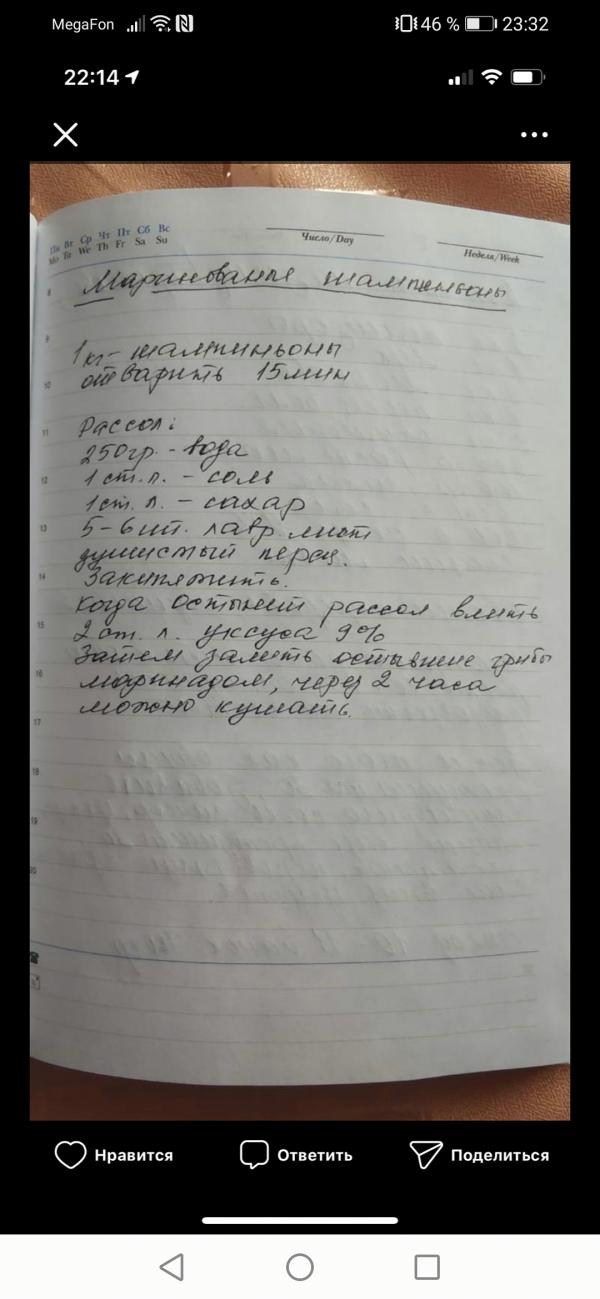 MegaFon 46 % 23:32
22:14
Пн Вт Ср Чт Пт Сб Вс
Mo Tu We Th Fr Sa Su
Число/Day
Неделя/Week
8 Маринованые шампиньоны
9
1 кг - шампиньоны
10 отварить 15 мин
11 Рассол:
250гр. - вода
12 1 ст. л. - соль
1 ст. л. - сахар
13 5-6 шт. лавр лист
душистый перец.
14 Закипятить.
Когда остынет рассол влить
15 2 ст. л. уксуса 9%
Затем залить остывшие грибы
16 маринадом, через 2 часа
можно кушать.
17
18
19
20
Нравится Ответить Поделиться